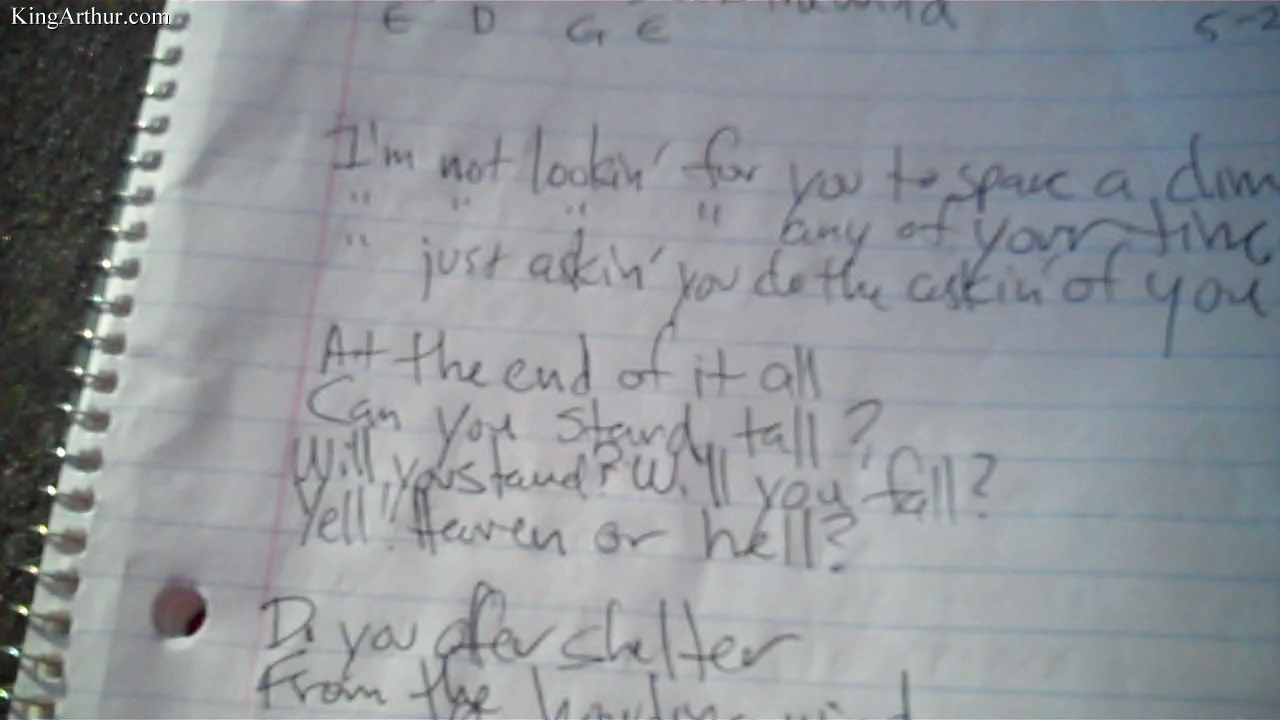 KingArthur.com
E D G E
5-2
I'm not lookin' for you to spare a dim
" " " " any of your time
" just askin' you do the askin' of you
At the end of it all
Can you stand tall?
Will you stand? Will you fall?
Yell! Heaven or hell?
Do you offer shelter
From the howling wind